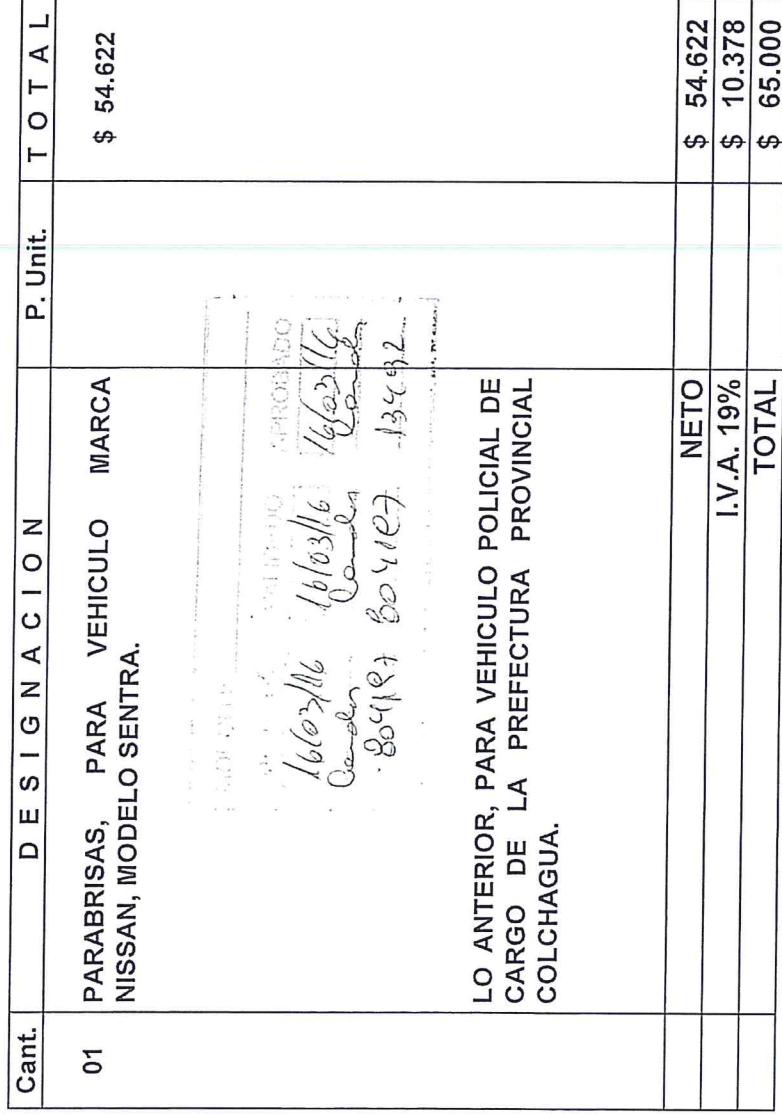 Cant. D E S I G N A C I O N P. Unit. T O T A L
01 PARABRISAS, PARA VEHICULO MARCA $ 54.622
NISSAN, MODELO SENTRA.
APROBADO
16/03/16 16/03/16 16/03/16
804187 804187 13492
LO ANTERIOR, PARA VEHICULO POLICIAL DE
CARGO DE LA PREFECTURA PROVINCIAL
COLCHAGUA.
NETO $ 54.622
I.V.A. 19% $ 10.378
TOTAL $ 65.000